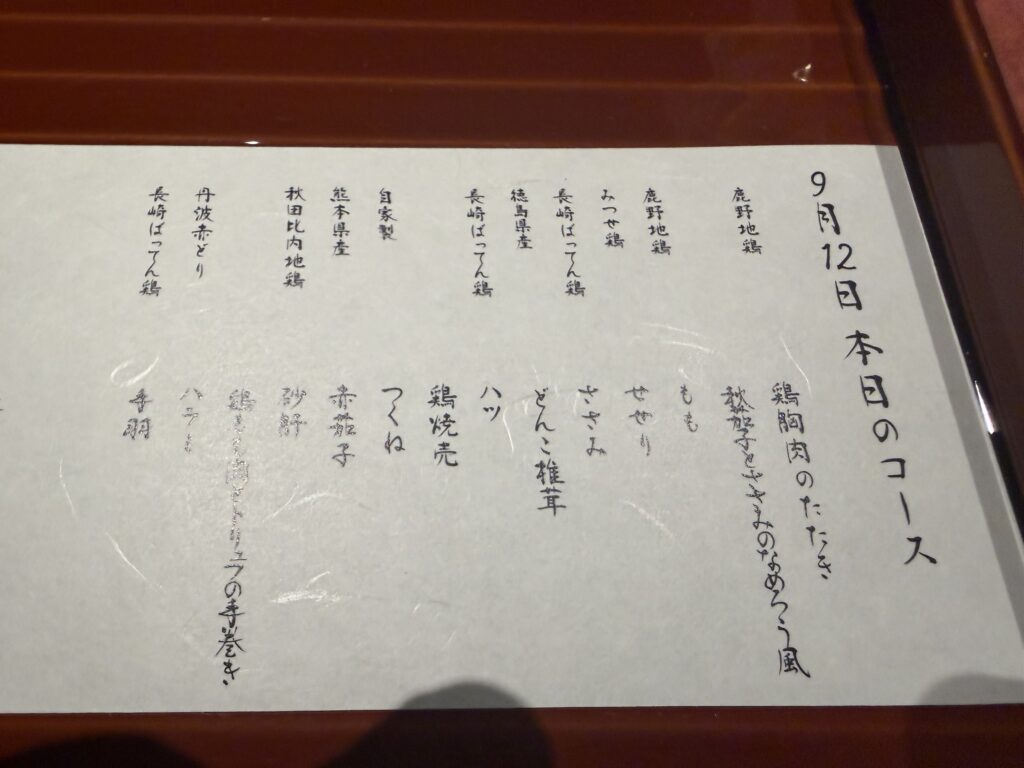 9月12日 本日のコース
鹿野地鶏 鶏胸肉のたたき
秋茄子とささみのなめろう風
鹿野地鶏 もも
みつせ鶏 せせり
長崎ばってん鶏 ささみ
徳島県産 どんこ椎茸
長崎ばってん鶏 ハツ
鶏焼売
自家製 つくね
熊本県産 赤茄子
秋田比内地鶏 砂肝
鶏 肉とトリュフの手巻き
丹波赤どり ハラミ
長崎ばってん鶏 手羽